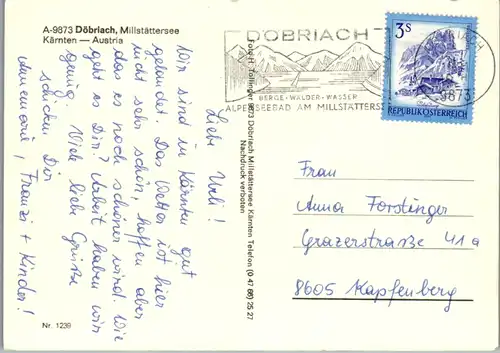 A-9873 Döbriach, Millstättersee
Kärnten — Austria
Liebe Uli!
Wir sind in Kärnten gut
gelandet. Das Wetter ist hier
nicht sehr schön, hoffen aber
das es noch schöner wird. Wie
geht es Dir? Arbeit haben wir
genug. Viele liebe Grüße
schicken Dir
Annemarie, Franzi + Kinder!
Nr. 1239
Zollinger 9873 Döbriach Millstättersee Kärnten Telefon (0 47 66) 25 27
Nachdruck verboten
DÖBRIACH
BERGE-WÄLDER-WASSER
ALPENSEEBAD AM MILLSTÄTTERSEE
3S
REPUBLIK ÖSTERREICH
DÖBRIACH
9873
Frau
Anna Forstinger
Grazerstraße 41a
8605 Kapfenberg